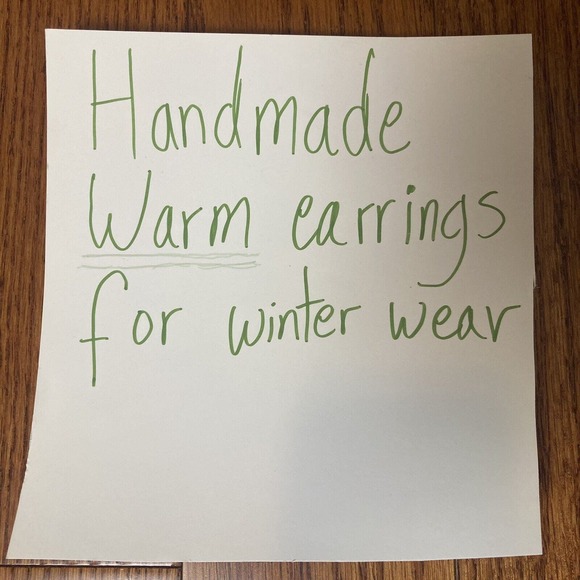 Handmade
Warm earrings
for winter wear